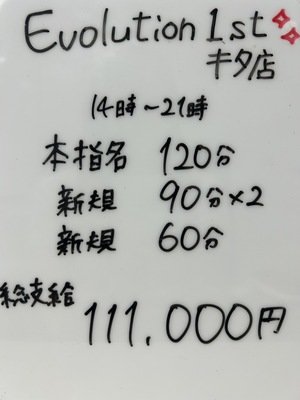 Evolution 1.st
キタ店
14時〜21時
本指名 120分
新規 90分×2
新規 60分
総支給
111,000円